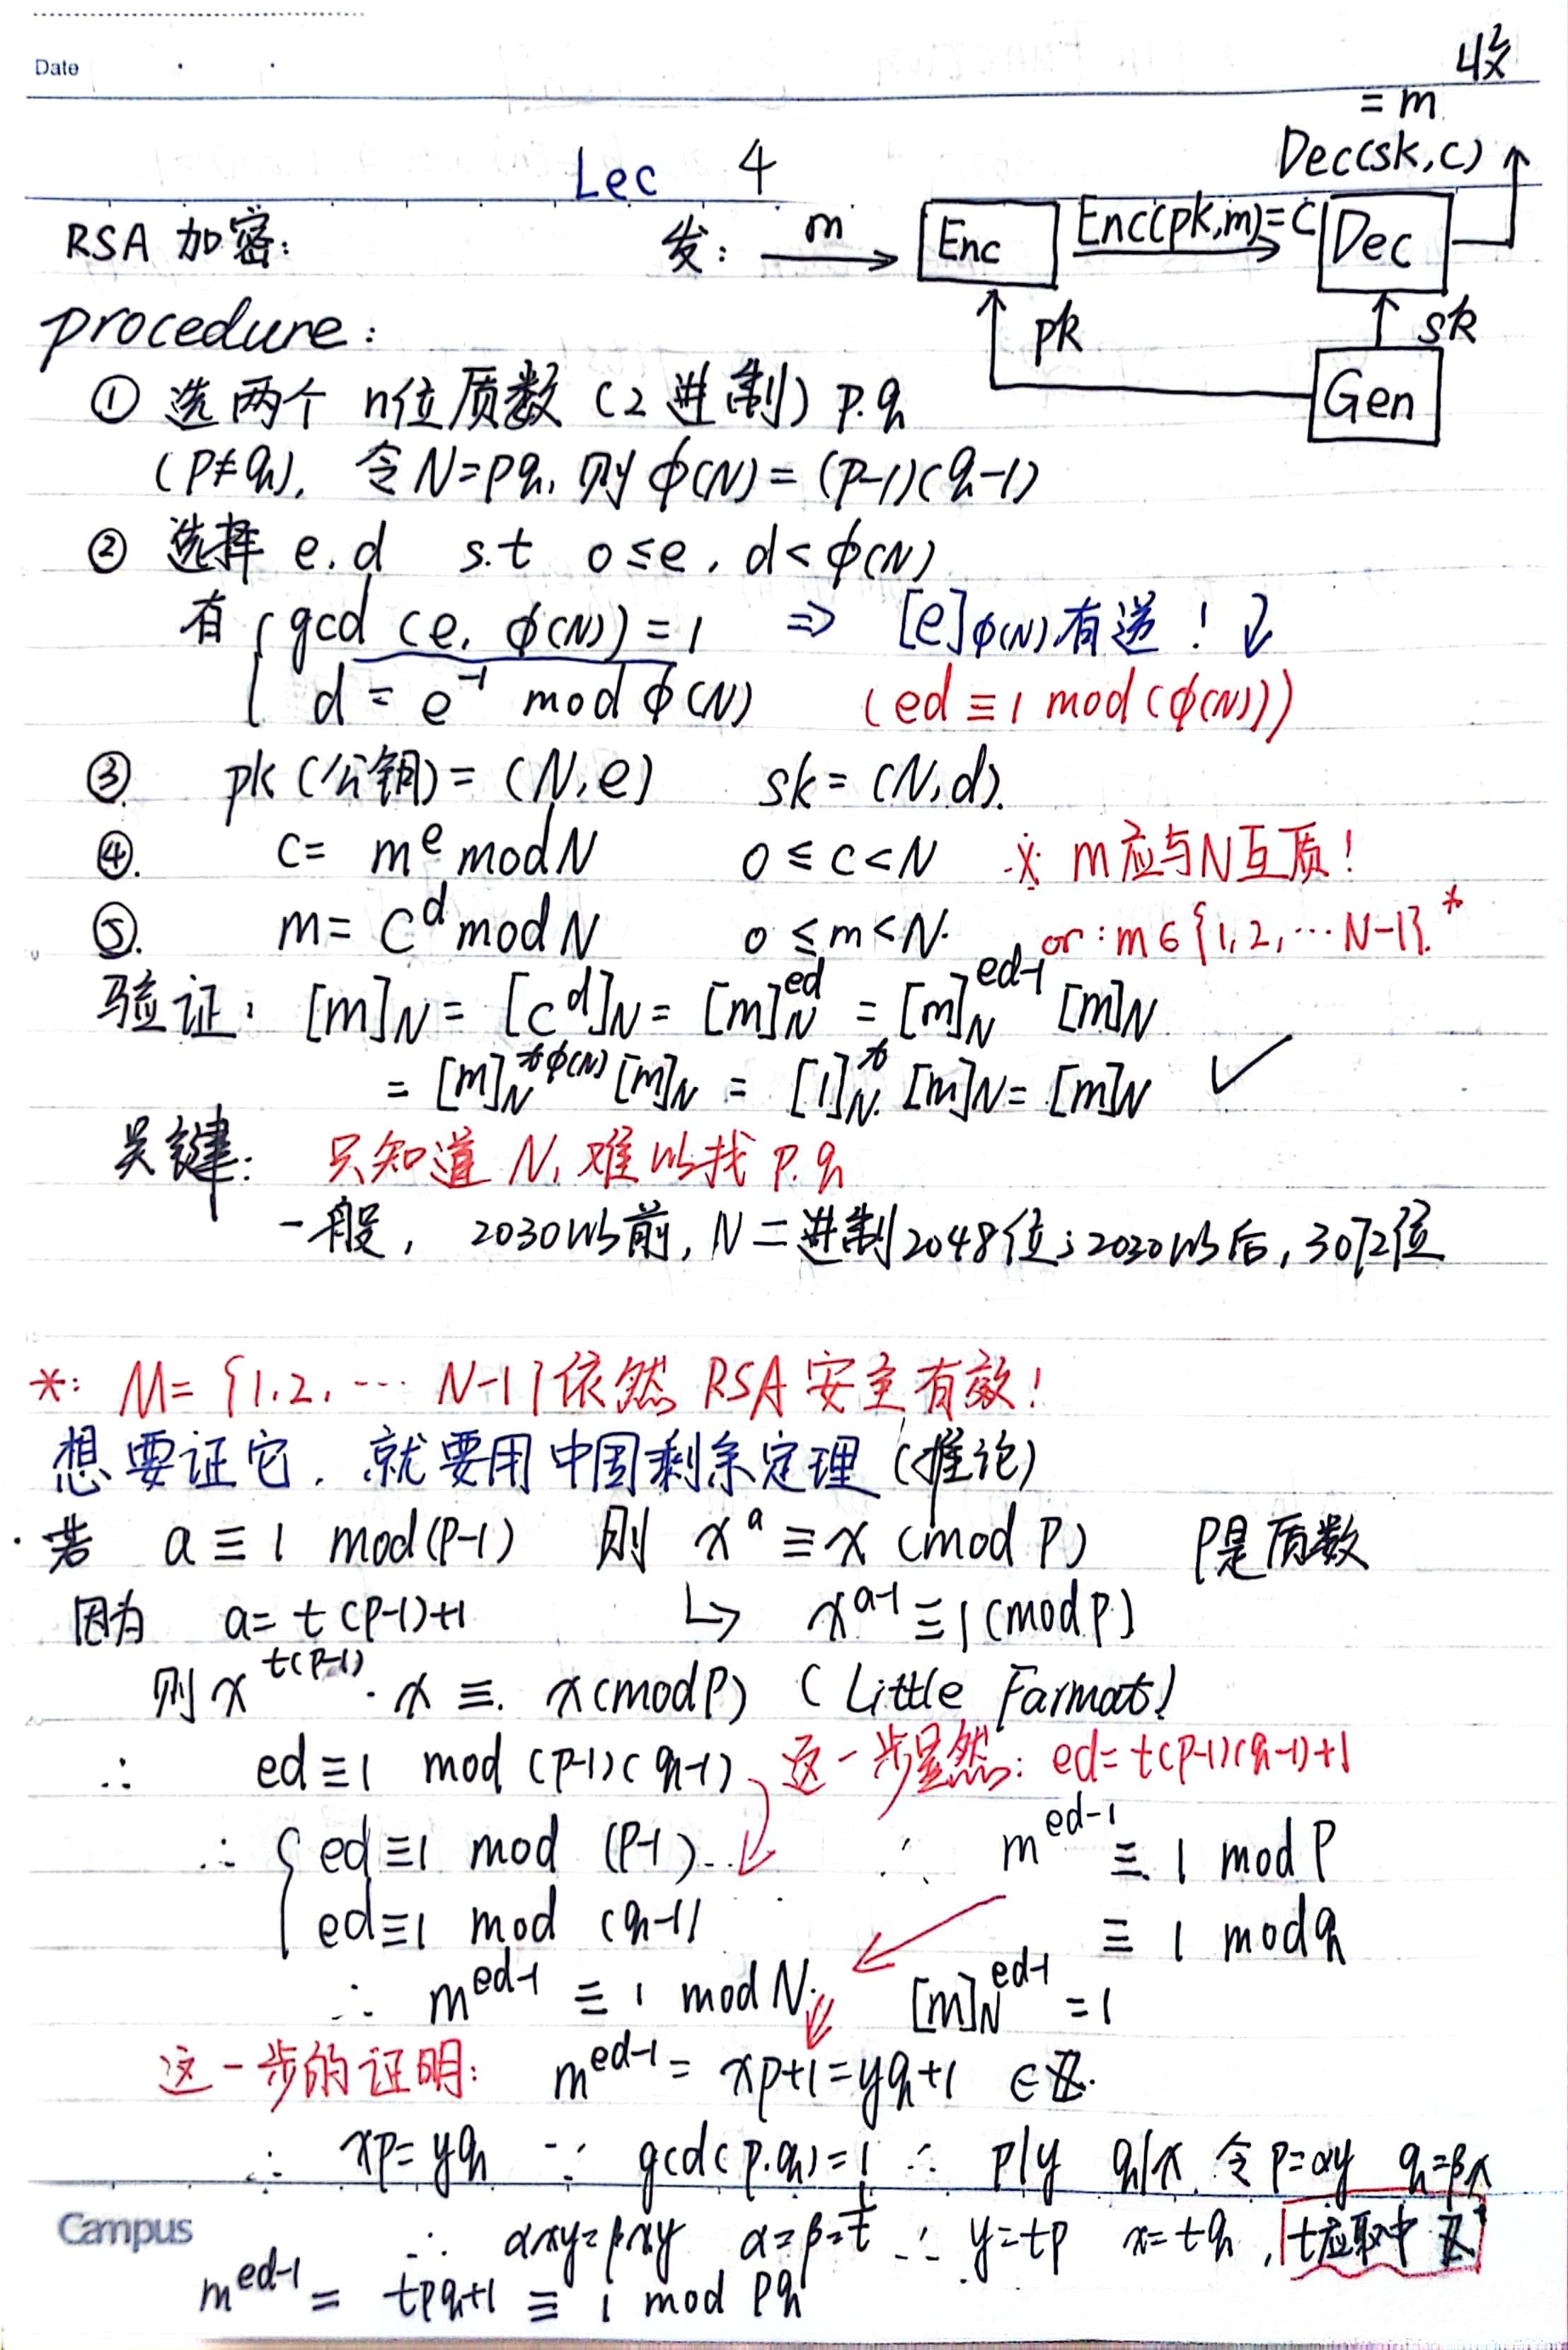 Date
收
= m
Dec(sk,c)
Lec 4
RSA 加密:
发: m Enc Enc(pk,m)=c Dec
pk sk
Gen
procedure:
① 选两个 n位质数 (2进制) p.q
(p≠q), 令N=pq, 则 ϕ(N)=(p-1)(q-1)
② 选择 e.d s.t 0≤e, d<ϕ(N)
有 { gcd (e, ϕ(N))=1 ⇒ [e]ϕ(N)有逆!
d = e^{-1} mod ϕ(N) (ed≡1 mod(ϕ(N)))
③. pk(公钥)=(N,e) sk=(N,d).
④. c= m^e modN 0≤c<N ※ m应与N互质!
⑤. m= c^d modN 0≤m<N. or: m∈{1,2,…N-1}.*
验证: [m]_N = [c^d]_N = [m]_N^{ed} = [m]_N^{ed-1} [m]_N
= [m]_N^{tϕ(N)} [m]_N = [1]_N^t [m]_N = [m]_N ✓
关键: 只知道 N, 难以找 p.q
一般, 2030以前, N二进制2048位; 2030以后, 3072位
*: M={1.2,… N-1}依然 RSA 安全有效!
想要证它, 就要用中国剩余定理 (推论)
· 若 a≡1 mod(p-1) 则 x^a≡x (mod p) p是质数
因为 a= t(p-1)+1 ↳ x^{a-1}≡1(mod p)
则 x^{t(p-1)}·x ≡. x(mod p) (Little Farmat)
∴ ed≡1 mod (p-1)(q-1) 这一步显然: ed= t(p-1)(q-1)+1
∴ { ed≡1 mod (p-1) ∴ m^{ed-1} ≡ 1 mod p
ed≡1 mod (q-1) ≡ 1 mod q
∴ m^{ed-1} ≡ 1 mod N. [m]_N^{ed-1} = 1
这一步的证明: m^{ed-1} = xp+1=yq+1 ∈ℤ.
∴ xp=yq ∵ gcd(p.q)=1 ∴ p|y q|x 令 p=αy q=βx
∴ αxy=βxy α=β=1/t ∴ y=tp x=tq, t应取中 ℤ
Campus
m^{ed-1} = tpq+1 ≡ 1 mod pq